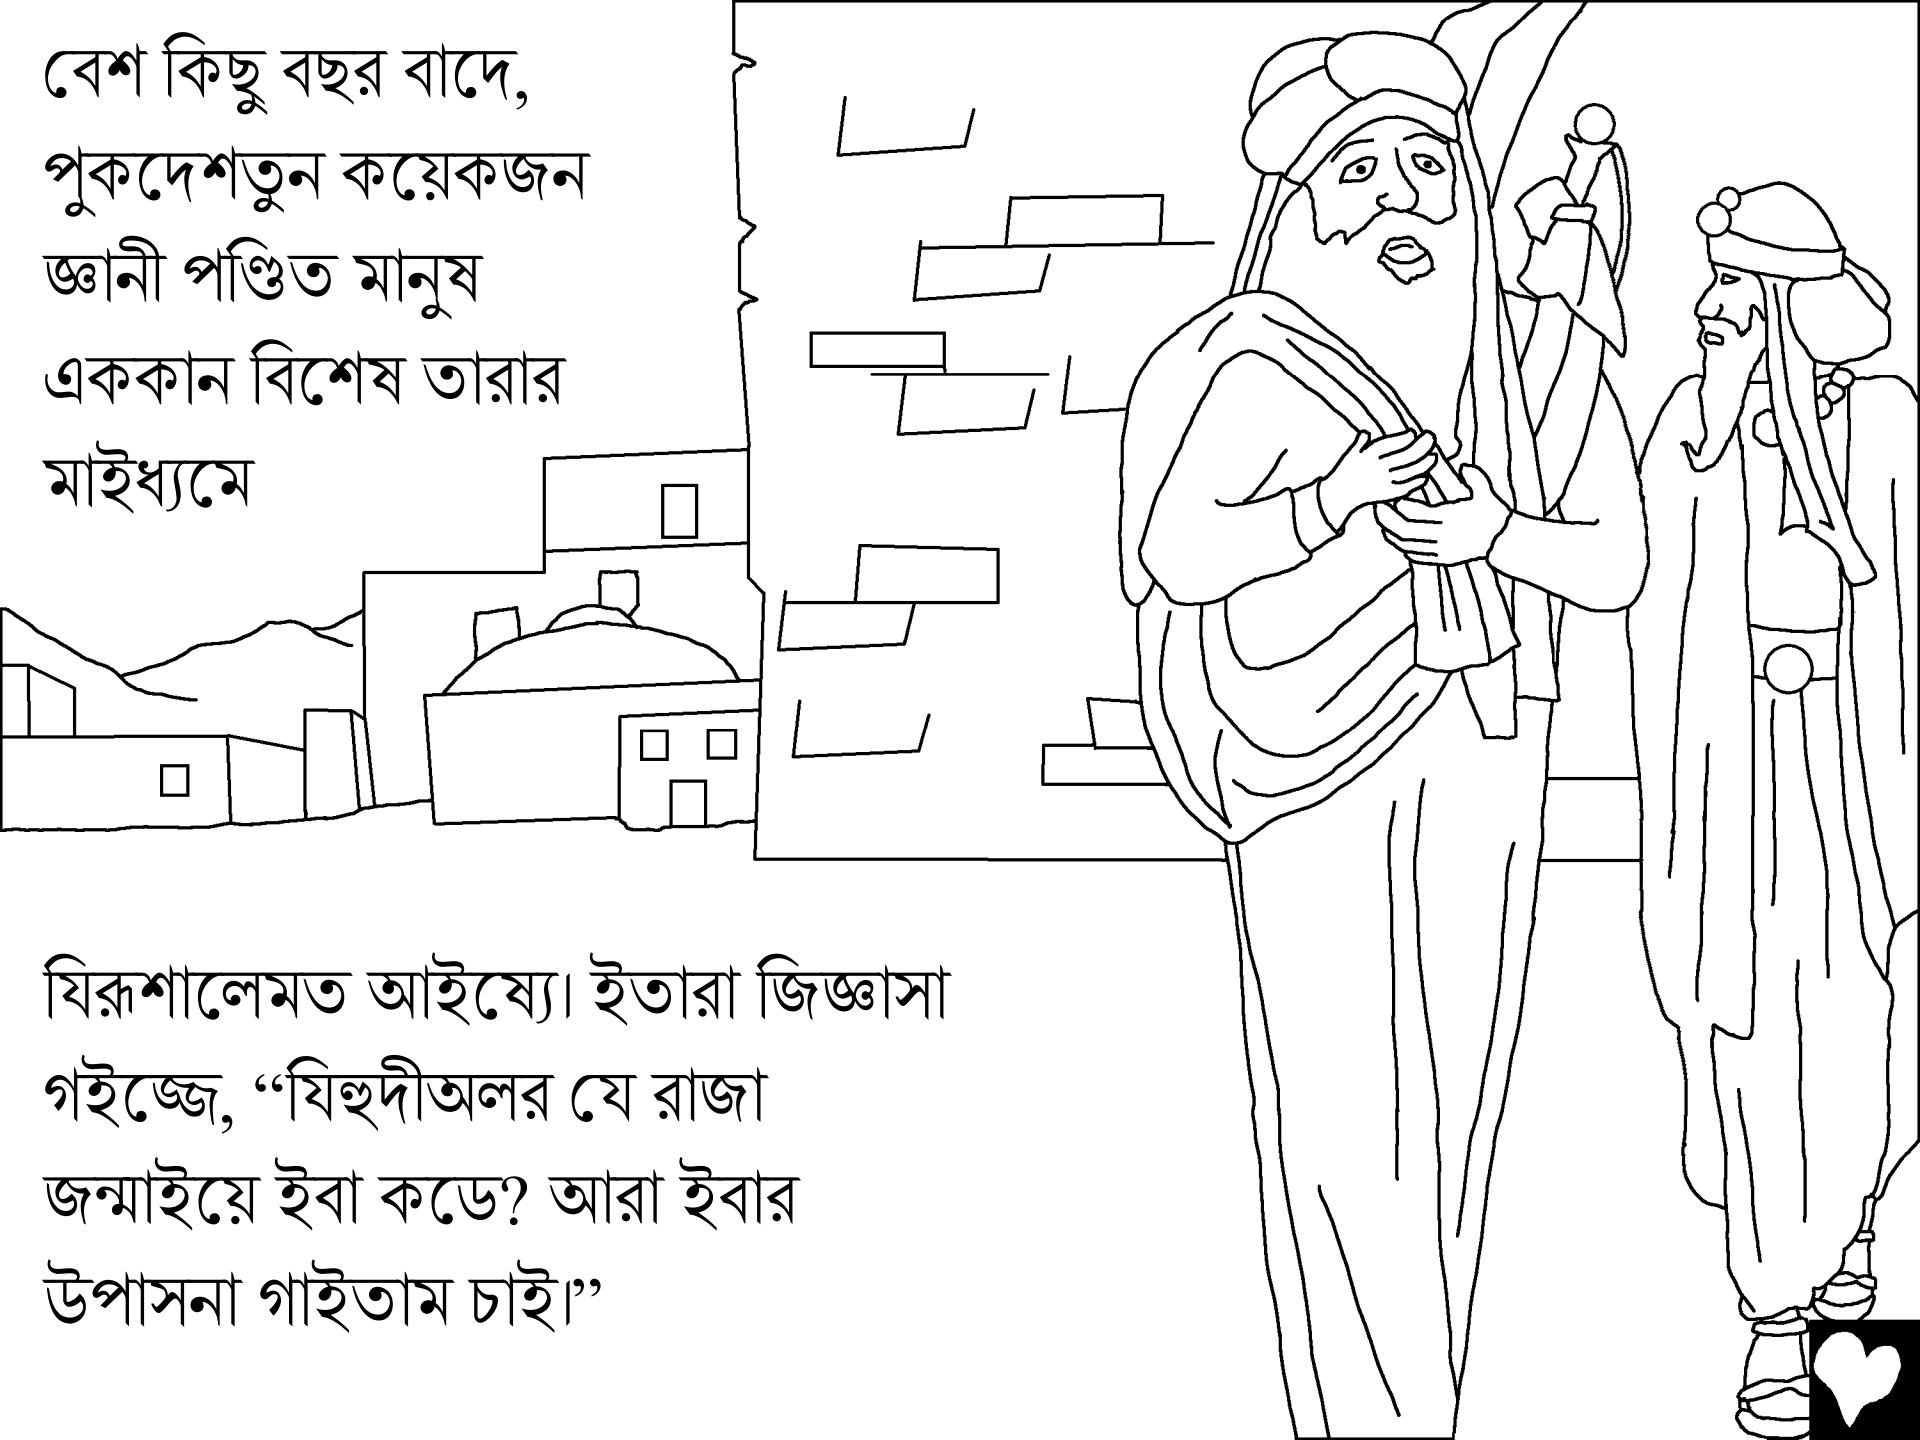 বেশ কিছু বছর বাদে,
পুকদেশতুন কয়েকজন
জ্ঞানী পণ্ডিত মানুষ
এককান বিশেষ তারার
মাইধ্যমে
যিরূশালেমত আইষ্যে। ইতারা জিজ্ঞাসা
গইজ্জে, “যিহুদীঅলর যে রাজা
জন্মাইয়ে ইবা কডে? আরা ইবার
উপাসনা গাইতাম চাই।”